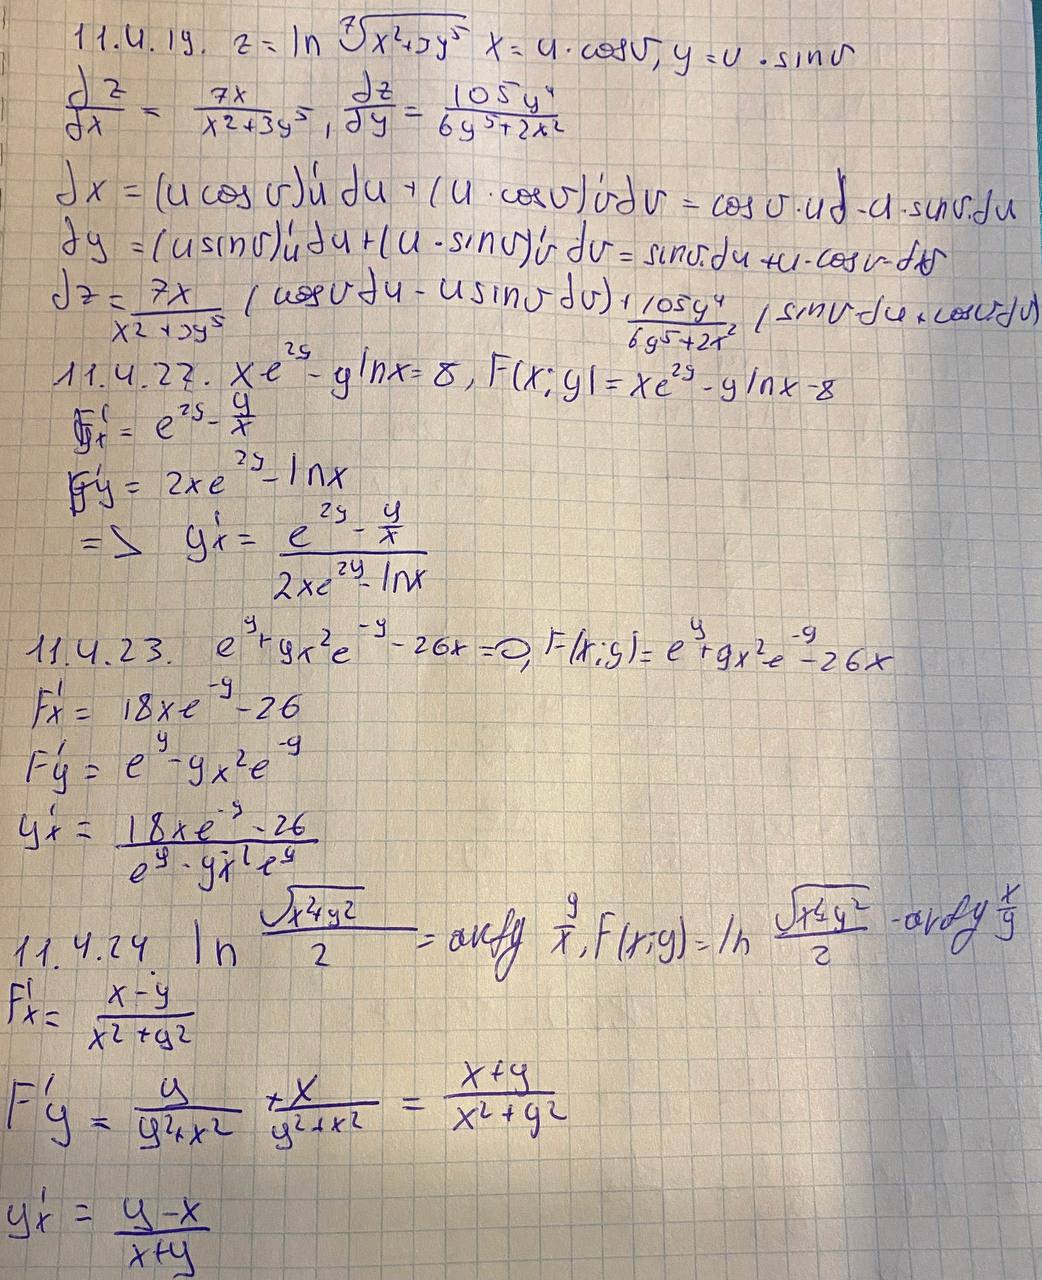 11.4.19. z = ln ⁷√(x²+3y⁵) x = u·cosv, y = u·sinv
dz/dx = 7x/(x²+3y⁵), dz/dy = 105y⁴/(6y⁵+2x²)
dx = (u cos v)'u du + (u·cosv)'v dv = cos v·ud - u·sinv·du
dy = (u sinv)'u du + (u·sinv)'v dv = sinv·du + u·cosv·dv
dz = 7x/(x²+3y⁵) (cosv du - u sinv dv) + 105y⁴/(6y⁵+2x²) (sinv·du + cosv·dv)
11.4.22. xe^2y - y lnx = 8, F(x; y) = xe^2y - y lnx - 8
F'x = e^2y - y/x
F'y = 2xe^2y - lnx
=> y'x = (e^2y - y/x)/(2xe^2y - lnx)
11.4.23. e^y + 9x²e^-y - 26x = 0, F(x;y) = e^y + 9x²e^-y - 26x
F'x = 18xe^-y - 26
F'y = e^y - 9x²e^-y
y'x = (18xe^-y - 26)/(e^y - 9x²e^y)
11.4.24. ln √(x²+y²)/2 = arctg y/x, F(x;y) = ln √(x²+y²)/2 - arctg x/y
F'x = (x-y)/(x²+y²)
F'y = y/(y²+x²) + x/(y²+x²) = (x+y)/(x²+y²)
y'x = (y-x)/(x+y)